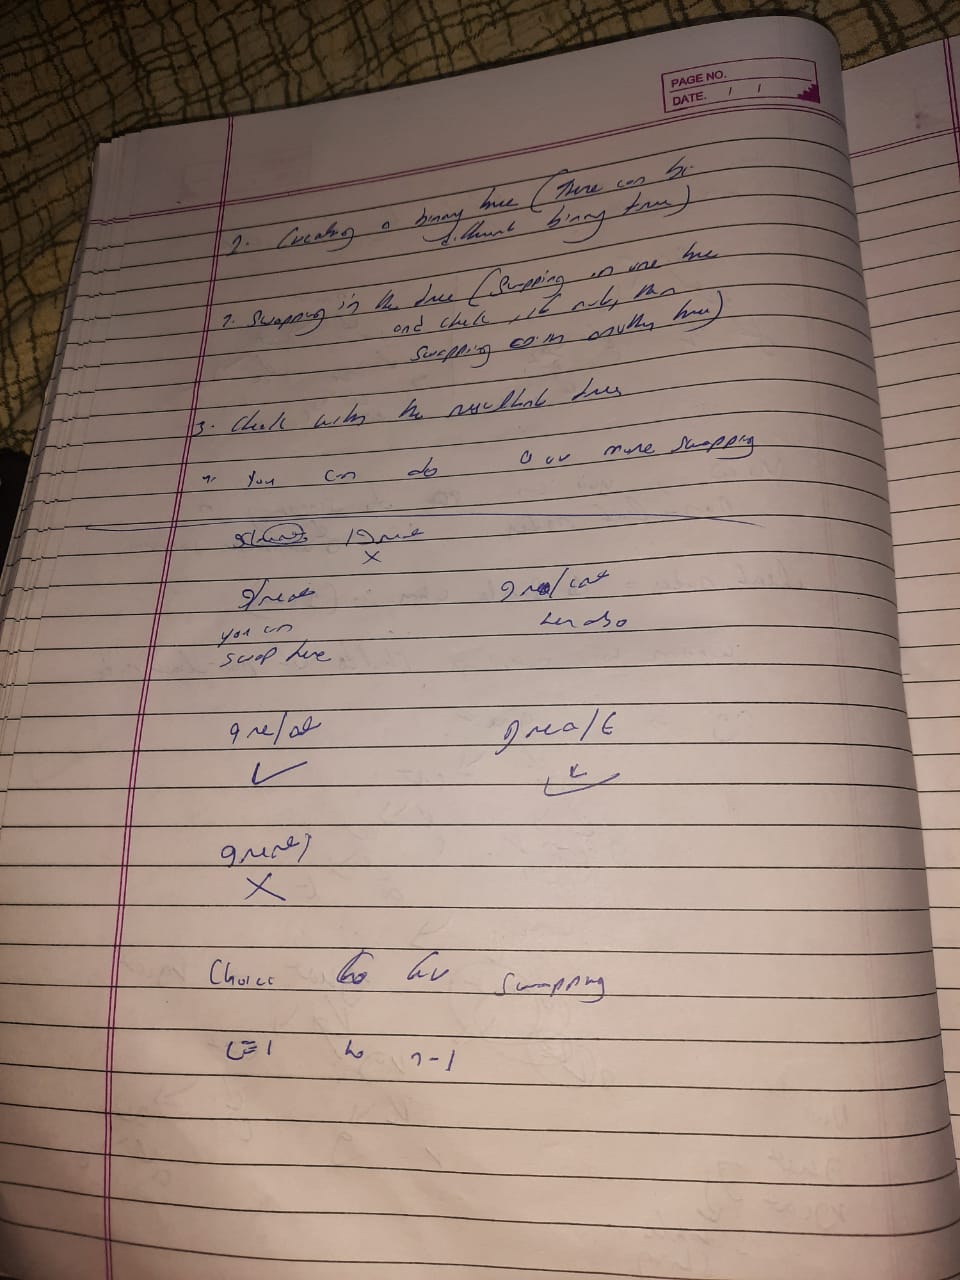 PAGE NO.
DATE. / /
2. Creating a binary tree (There can be
different binary tree)
2. Swapping in the tree (Swapping in one tree
and check, if not, then
swapping in another tree)
3. Check with the resultant tree
4. You can do 0 or more swapping
/great
X
g/reat
gre/at
you can
swap here
gre/at
grea/t
great/
X
Choice for swapping
i=1 to n-1